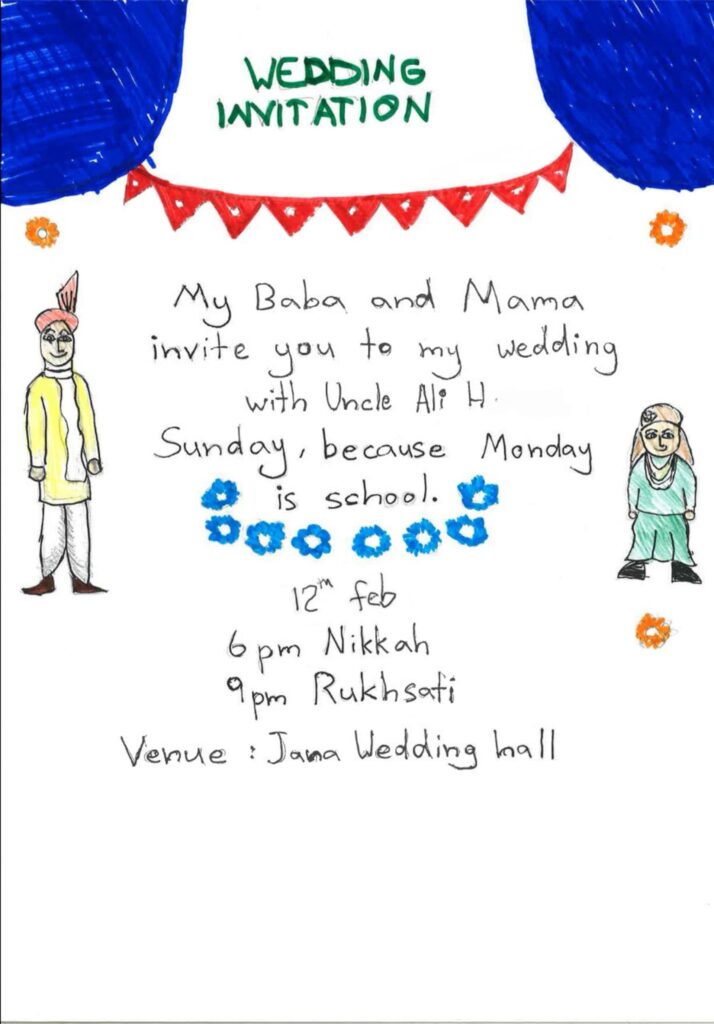 WEDDING
INVITATION
My Baba and Mama
invite you to my wedding
with Uncle Ali H.
Sunday, because Monday
is school.
12th feb
6 pm Nikkah
9pm Rukhsati
Venue : Jana Wedding hall